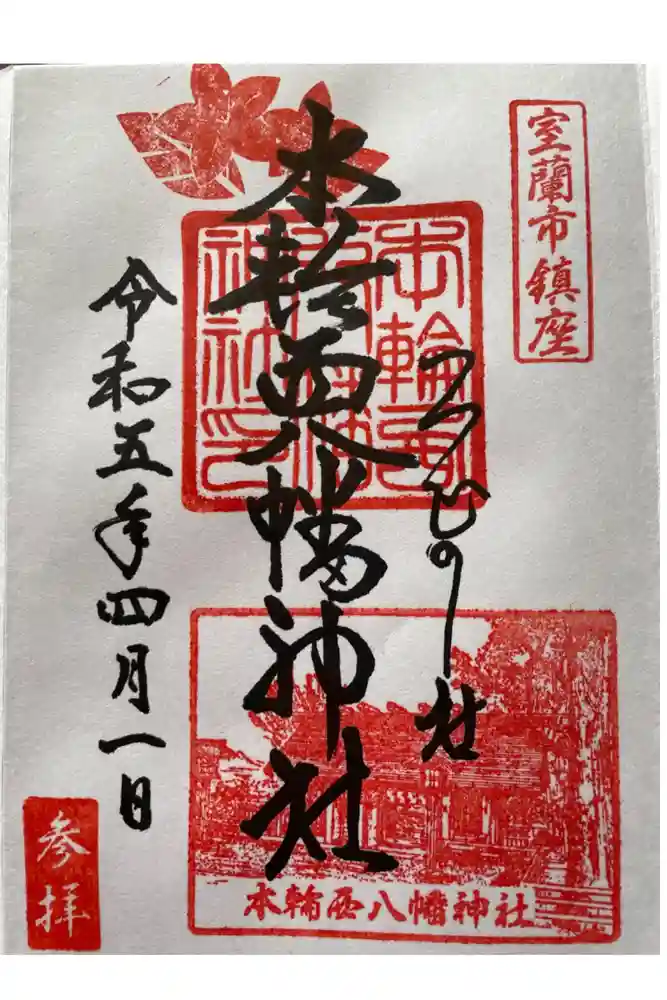 室蘭市鎮座
つつじの社
本輪西八幡神社
令和五年四月一日
参拝
本輪西
八幡
神社印
本輪西八幡神社